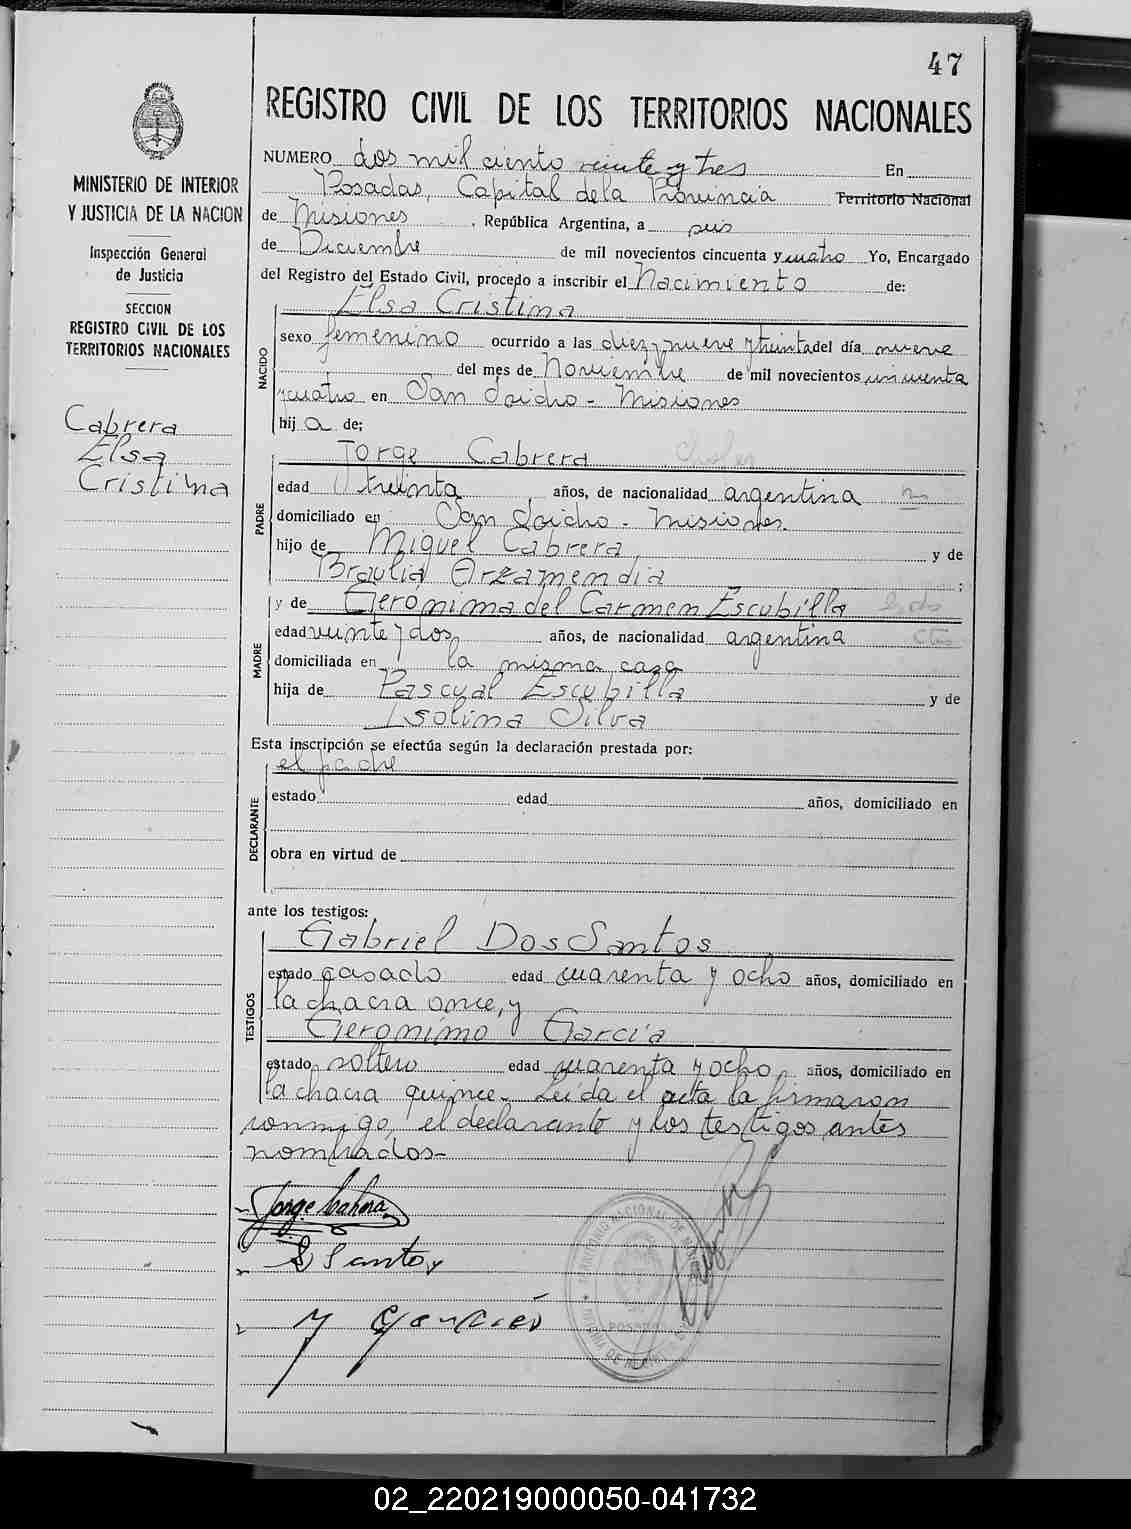 47
REGISTRO CIVIL DE LOS TERRITORIOS NACIONALES
MINISTERIO DE INTERIOR
Y JUSTICIA DE LA NACION
Inspección General
de Justicia
SECCION
REGISTRO CIVIL DE LOS
TERRITORIOS NACIONALES
Cabrera
Elsa
Cristina
NUMERO dos mil ciento veinte y tres En
Posadas, Capital de la Provincia Territorio Nacional
de Misiones, República Argentina, a seis
de Diciembre de mil novecientos cincuenta y cuatro Yo, Encargado
del Registro del Estado Civil, procedo a inscribir el Nacimiento de:
NACIDO
Elsa Cristina
sexo femenino ocurrido a las diez y nueve y treinta del día nueve
del mes de Noviembre de mil novecientos cincuenta
y cuatro en San Isidro - Misiones
hij a de:
PADRE
Jorge Cabrera Chofer
edad treinta años, de nacionalidad argentina
domiciliado en San Isidro - Misiones.
hijo de Miguel Cabrera y de
Braulia Arzamendia ;
MADRE
y de Gerónima del Carmen Escubilla
edad veinte y dos años, de nacionalidad argentina
domiciliada en la misma casa
hija de Pascual Escubilla y de
Isolina Silva
Esta inscripción se efectúa según la declaración prestada por:
DECLARANTE
el padre
estado edad años, domiciliado en
obra en virtud de
ante los testigos:
TESTIGOS
Gabriel Dos Santos
estado casado edad cuarenta y ocho años, domiciliado en
la chacra once, y
Geronimo Garcia
estado soltero edad cuarenta y ocho años, domiciliado en
la chacra quince - Leída el acta la firmaron
conmigo, el declarante y los testigos antes
nombrados-
Jorge Cabrera
Santos
POSADAS
02_220219000050-041732